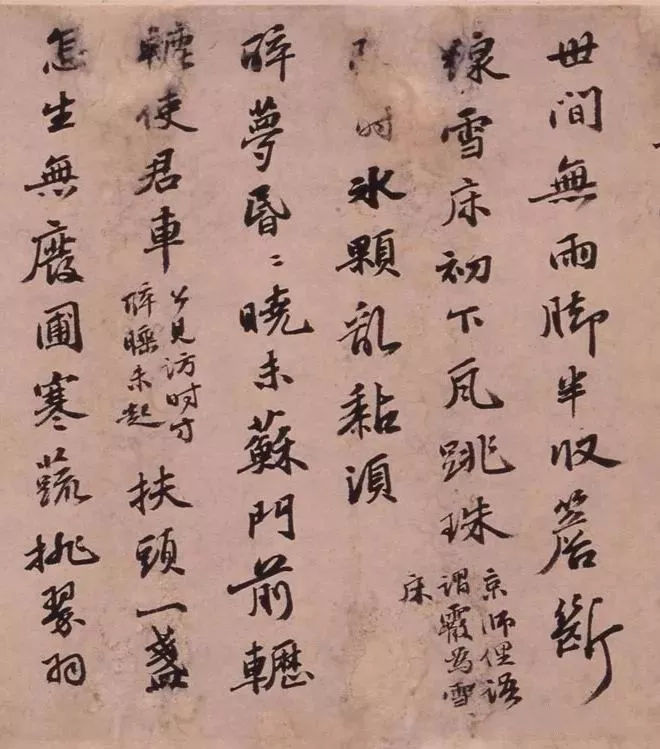 世間無雨脚半收簷斷
線雪床初下瓦跳珠
京師俚語
謂霰為雪
床
時冰顆乱黏須
醉夢昏〻曉未蘇門前轣
轆使君車
公見訪時方
醉睡未起
扶頭一盞
怎生無廢圃寒蔬挑翠羽